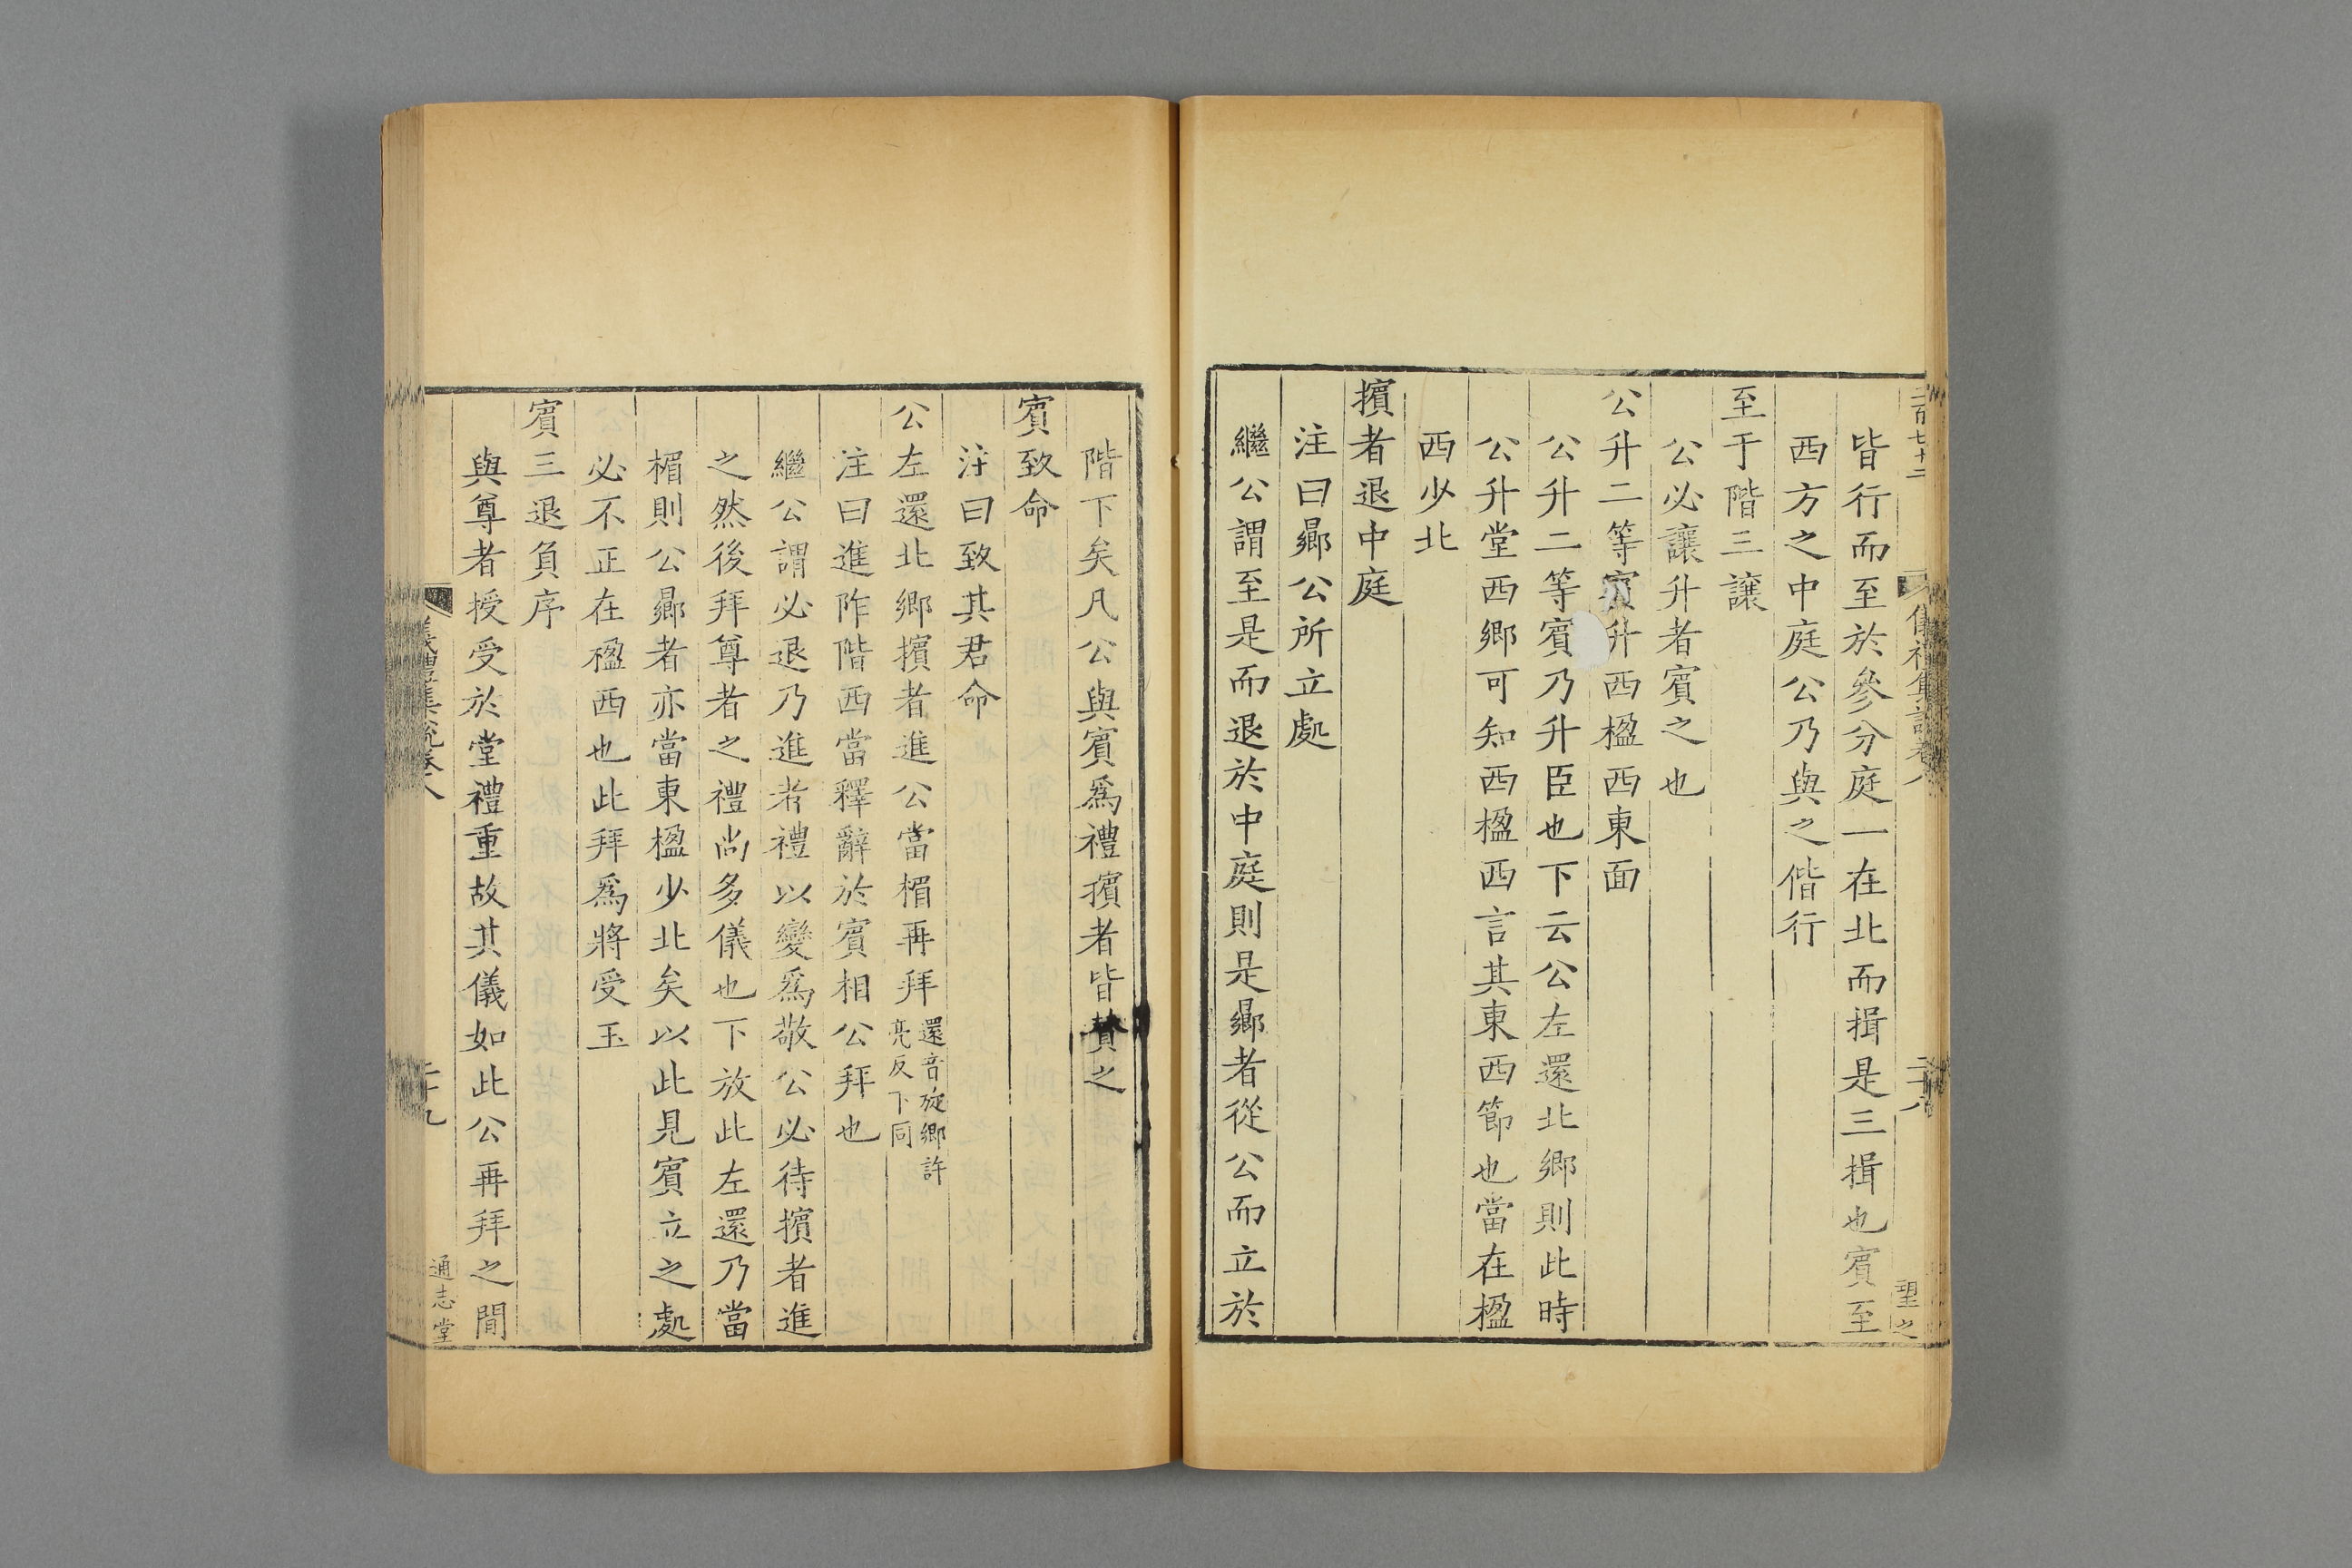 皆行而至於參分庭一在北而揖是三揖也賓至
西方之中庭公乃與之偕行
至于階三讓
公必讓升者賓之也
公升二等賓升西楹西東面
公升二等賓乃升臣也下云公左還北鄉則此時
公升堂西鄉可知西楹西言其東西節也當在楹
西少北
擯者退中庭
注曰曏公所立處
繼公謂至是而退於中庭則是曏者從公而立於
階下矣凡公與賓爲禮擯者皆贊之
賓致命
注曰致其君命
公左還北鄉擯者進公當楣再拜還音旋鄉許亮反下同
注曰進阼階西當釋辭於賓相公拜也
繼公謂必退乃進者禮以變爲敬公必待擯者進
之然後拜尊者之禮尚多儀也下放此左還乃當
楣則公曏者亦當東楹少北矣以此見賓立之處
必不正在楹西也此拜爲將受玉
賓三退負序
與尊者授受於堂禮重故其儀如此公再拜之間
儀禮集說卷八
二十九
通志堂